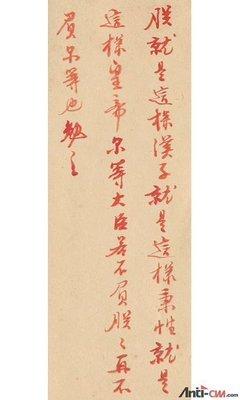 朕就是這樣漢子就是這樣秉性就是
這樣皇帝尔等大臣若不負朕〻再不
負尔等也勉之
Anti-CNN.com